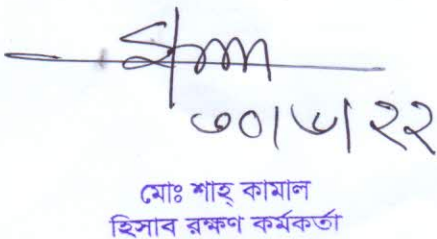 ৩০|৬|২২
মোঃ শাহ্ কামাল
হিসাব রক্ষণ কর্মকর্তা